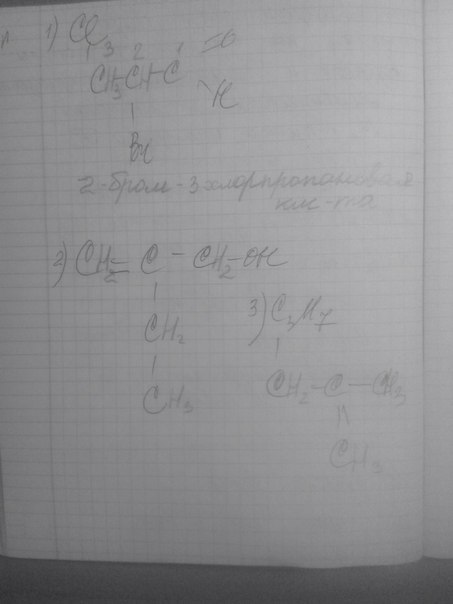 1) Cl
3 2 1 =O
CH3-CH-C
H
Br
2-бром-3хлорпропановая
кис-та
2) CH2=C-CH2-OH
CH2
CH3
3) C3H7
CH2-C-CH3
CH2